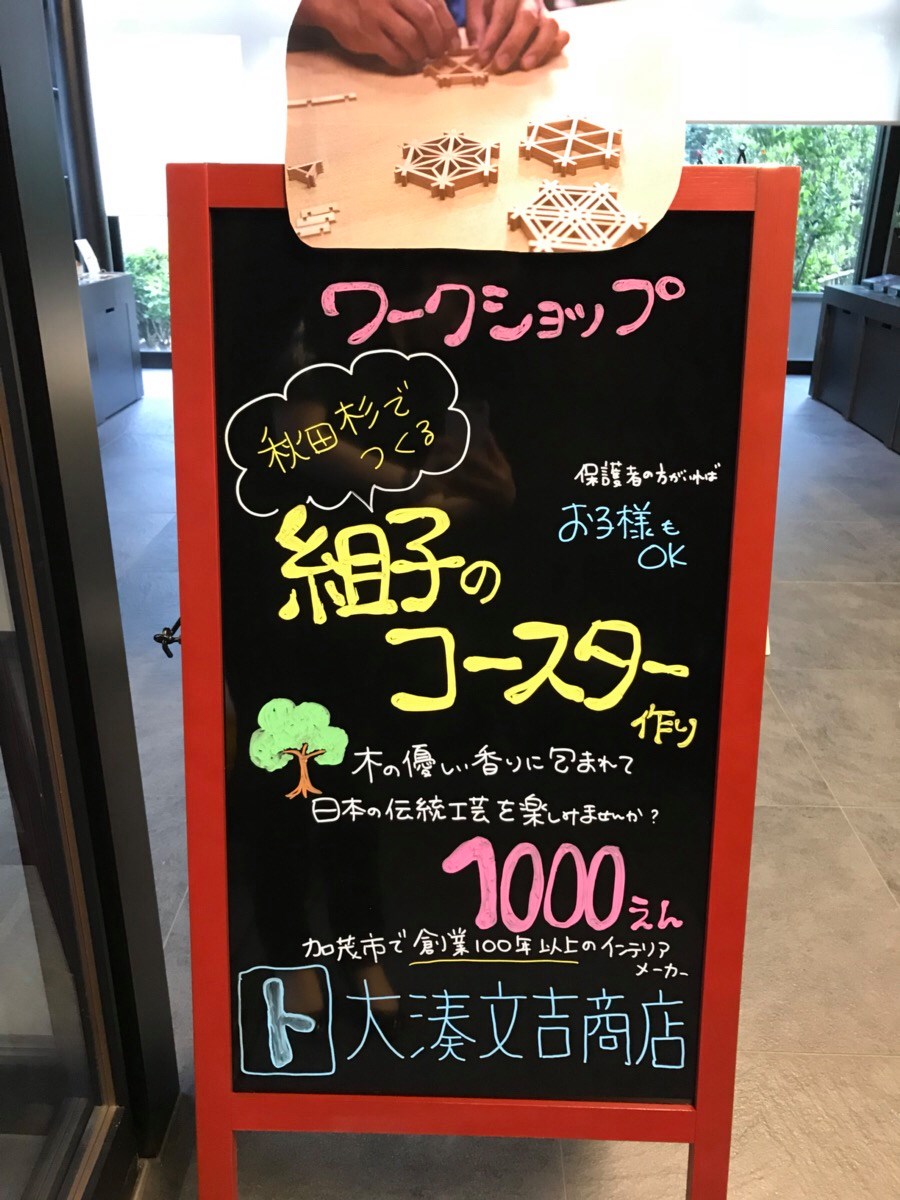 ワークショップ
秋田杉で
つくる
保護者の方がいれば
お子様も
OK
組子の
コースター
作り
木の優しい香りに包まれて
日本の伝統工芸を楽しめませんか?
1000えん
加茂市で創業100年以上のインテリア
メーカー
ト 大湊文吉商店